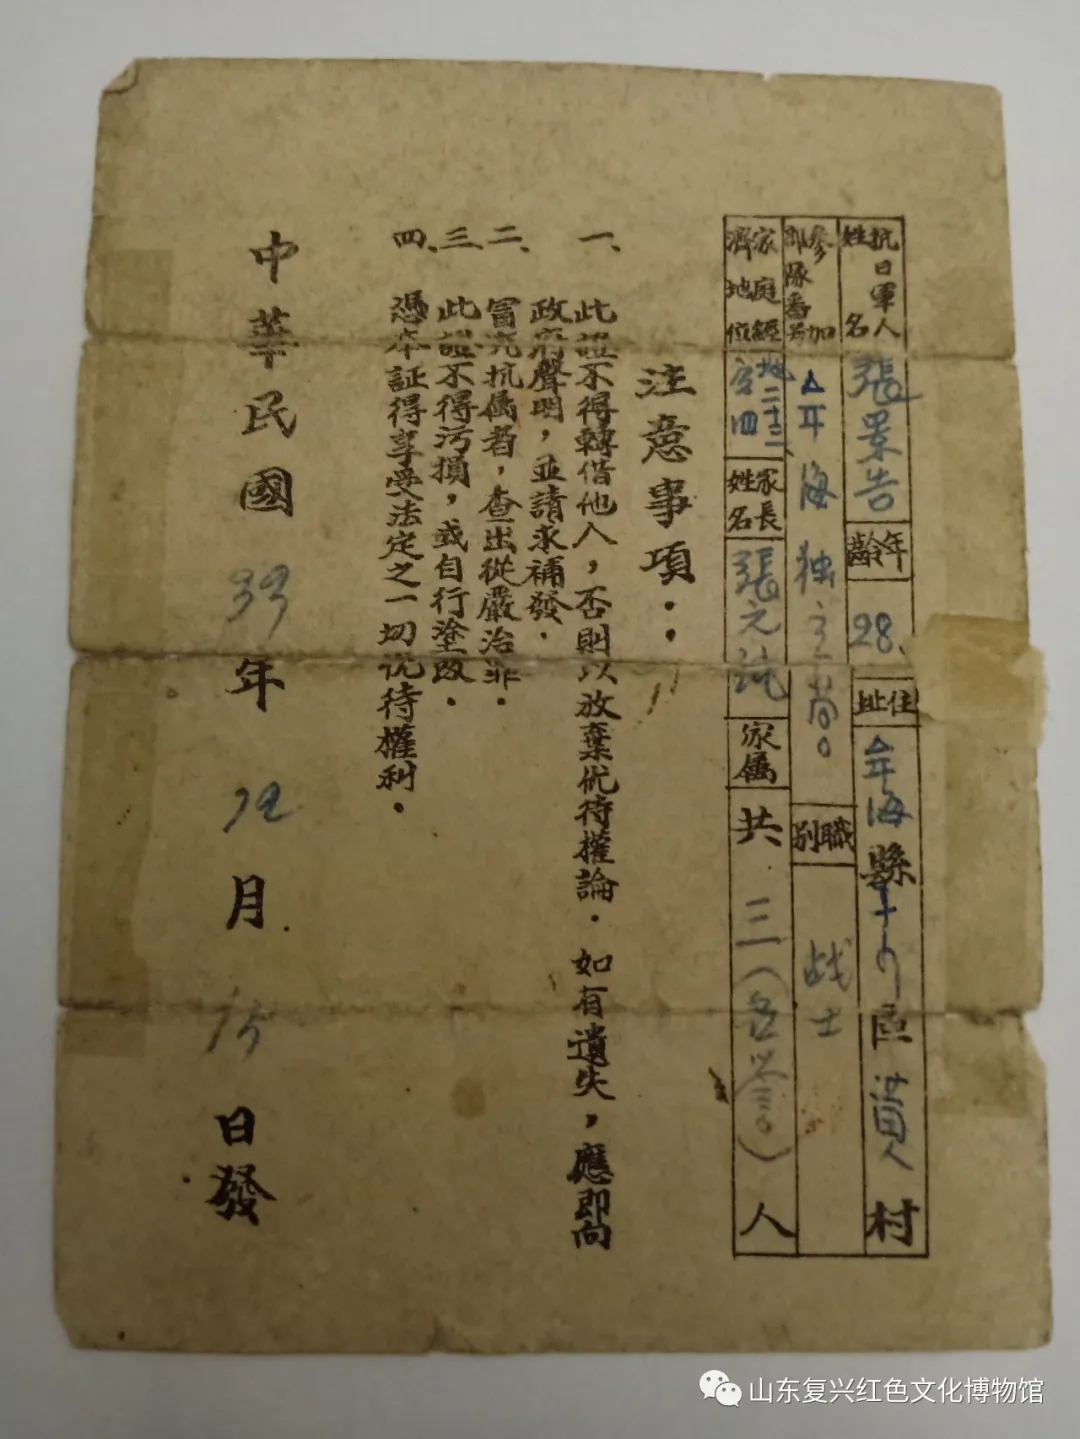 抗日軍人姓名 張景告 年齡 28. 住址 牟海縣十八區 村
參加部隊番号 牟海独立营。 職別 战士
家庭經濟地位 地二 房四 家長姓名 張元 家属 共三( )人
注意事項：
一、此證不得轉借他人，否則以放棄优待權論．如有遺失，應即向
政府聲明，並請求補發．
二、冒充抗属者，查出從嚴治罪．
三、此證不得污損，或自行塗改．
四、憑本証得享受法定之一切优待權利．
中華民國 33 年 12 月 15 日發
山东复兴红色文化博物馆